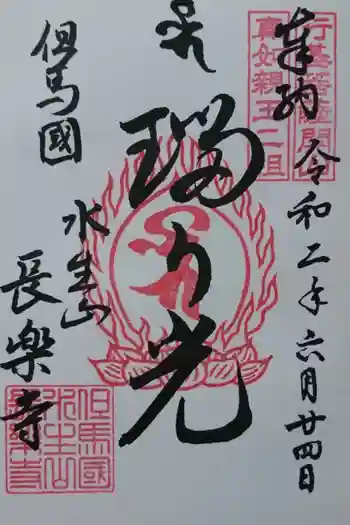 奉納
令和二年六月廿四日
行基菩薩開山
真如親王二祖
瑠り光
但馬國
水生山
長樂寺
但馬國
水生山
長樂寺